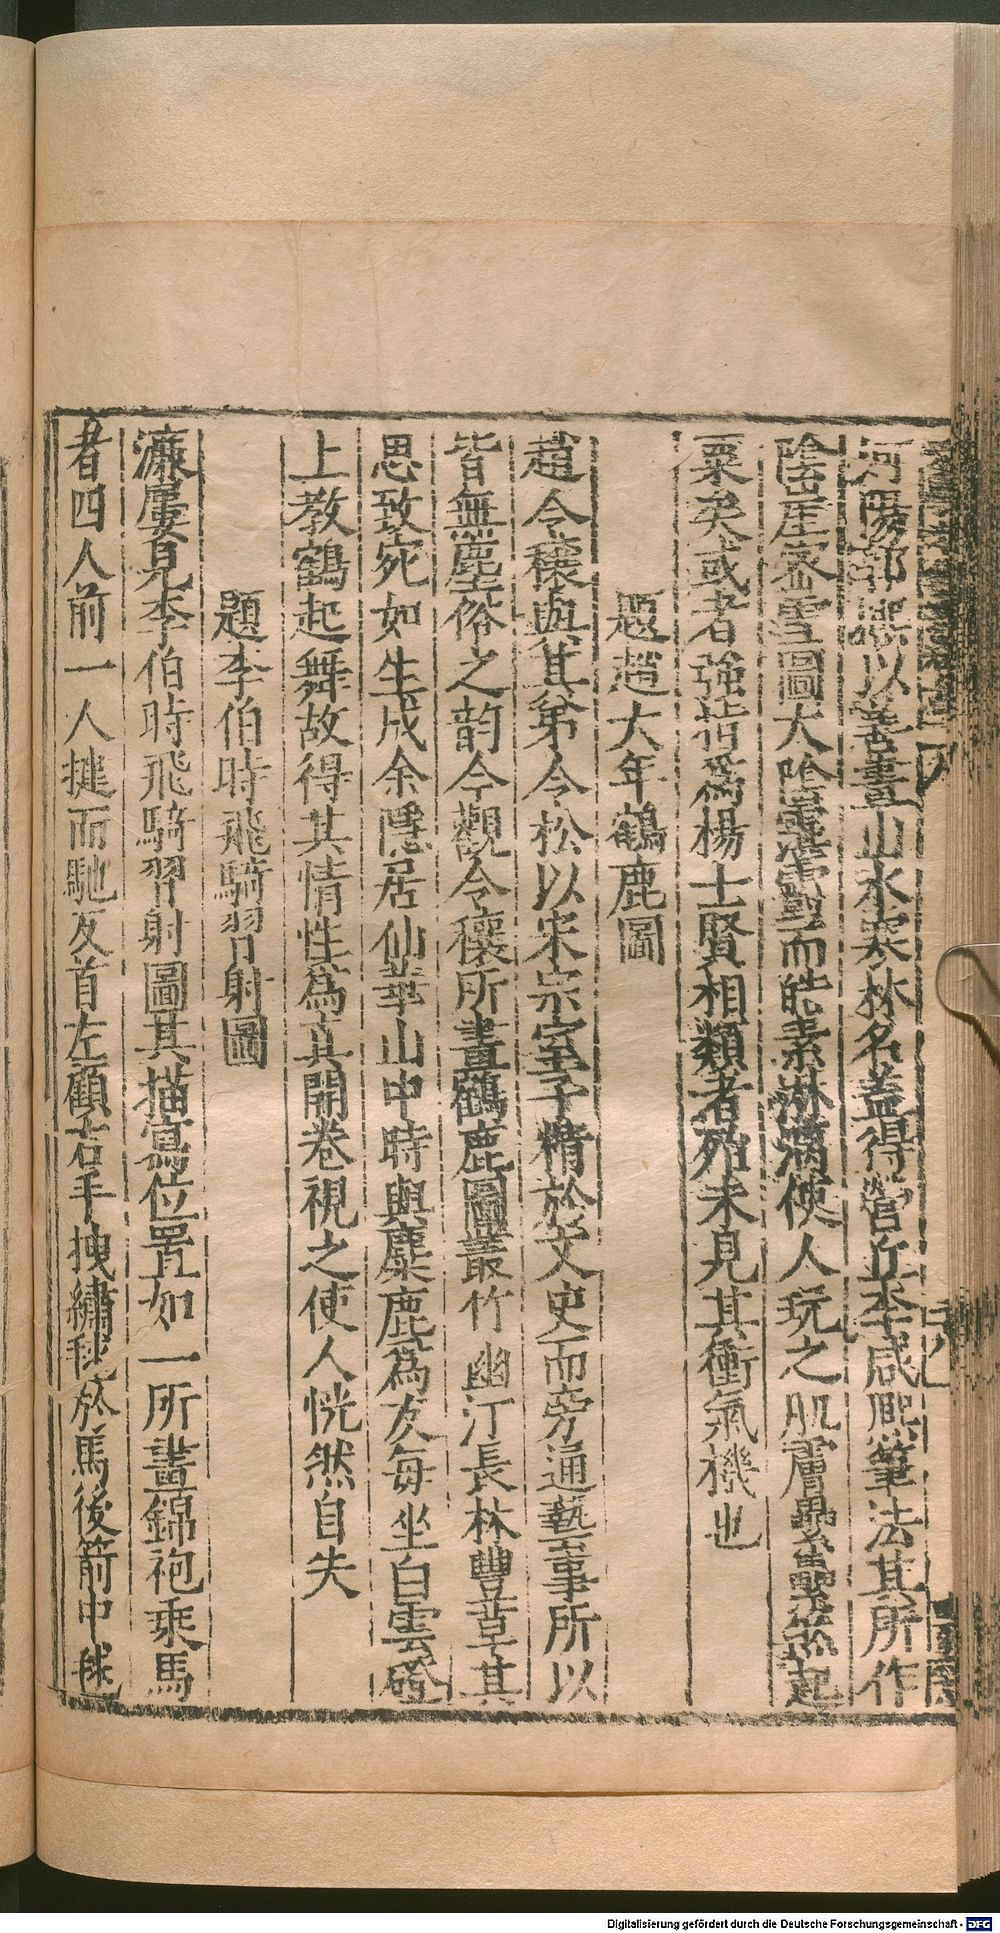 河陽郭熙以善畫山水寒林名蓋得營丘李咸熙筆法其所作
陰崖密雪圖大陰霮䨴而皓素淋漓使人玩之肌膚纍纍然起
粟矣或者強指為楊士賢相類者殆未見其衝氣機也
題趙大年鶴鹿圖
趙令穰與其弟令松以宋宗室子精於文史而旁通藝事所以
皆無塵俗之韵今觀令穰所畫鶴鹿圖叢竹幽汀長林豐草其
思致宛如生成余隱居仙華山中時與麋鹿為友每坐白雲磴
上教鶴起舞故得其情性為真開卷視之使人恍然自失
題李伯時飛騎習射圖
濂屢見李伯時飛騎習射圖其描寫位置如一所畫錦袍乘馬
者四人前一人挾而馳反首左顧右手拽繡毬於馬後箭中毬
Digitalisierung gefördert durch die Deutsche Forschungsgemeinschaft - DFG